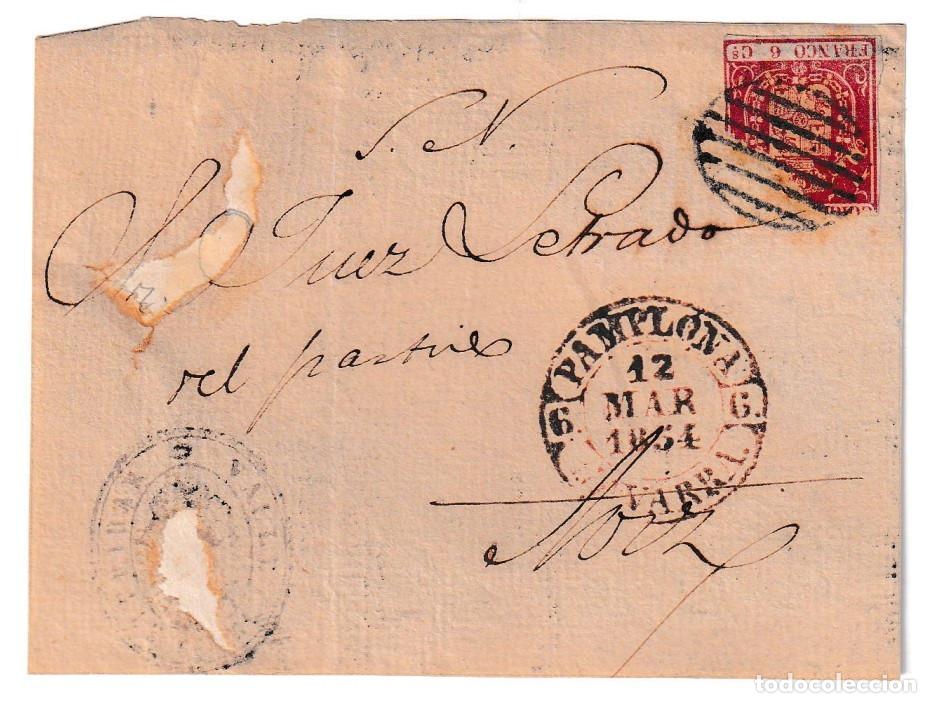 FRANCO 6 Cs
CORR
S. N.
Sr. Juez Letrado
del partido
PAMPLONA
6. 12 G.
MAR
1854
VARRA
Aoiz
todocoleccion